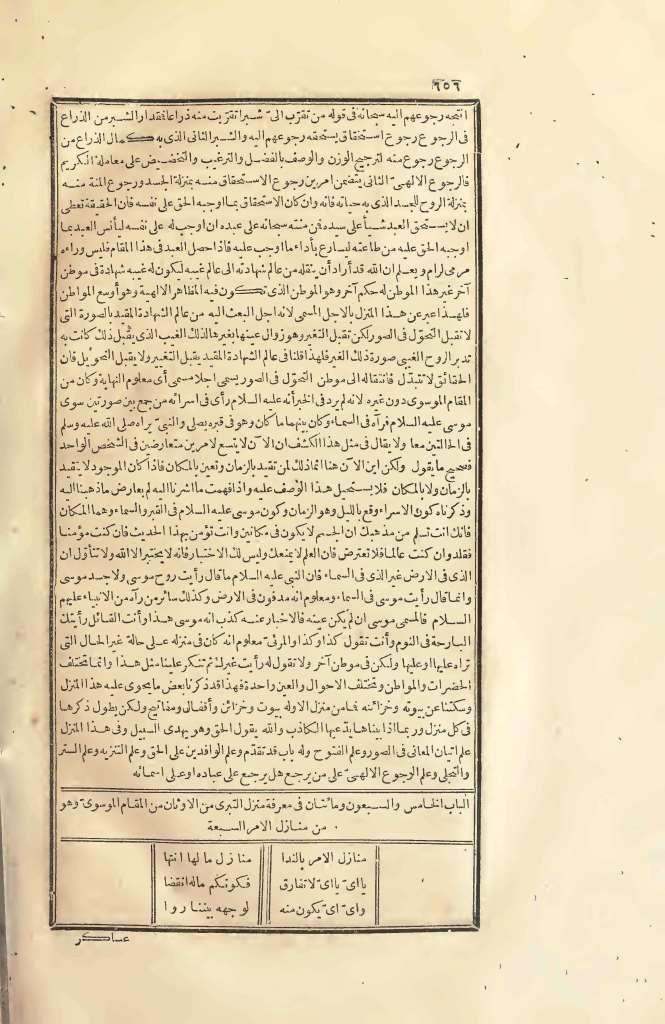 ٦٥٦
انتجه رجوعهم اليه سبحانه فى قوله من تقرّب الىّ شبرا تقرّبت منه ذراعا فقدار الشبر من الذراع
فى الرجوع رجوع استحقاق يستحقه رجوعهم اليه والشبر الثانى الذى به كمال الذراع من
الرجوع رجوع منه لترجيح الوزن والوصف بالفضل والترغيب والتحضيض على معاملة الكريم
فالرجوع الالهىّ الثانى يتضمن امرين رجوع الاستحقاق منه بمنزلة الجسد ورجوع المنة منه
بمنزلة الروح للجسد الذى به حياته فانه وان كان الاستحقاق بما اوجبه الحق على نفسه فان الحقيقة تعطى
ان لا يستحق العبد شيأ على سيده فمن منته سبحانه على عبده ان اوجب له على نفسه ليأنس العبد بما
اوجبه الحق عليه من طاعته ليسارع بأداء ما اوجب عليه فاذا حصل العبد فى هذا المقام فليس وراءه
مرمى لرام ويعلم ان الله قد أراد أن ينقله من عالم شهادته الى عالم غيبه ليكون له غيبه شهادة فى موطن
آخر غير هذا الموطن له حكم آخر وهو الموطن الذى تكون فيه المظاهر الالهية وهو أوسع المواطن
فلهذا عبر عن هذا المنزل بالاجل المسمى لانه اجل البعث اليه من عالم الشهادة المقيد بالصورة التى
لا تقبل التحوّل فى الصور لكن تقبل التغير وهو زوال عينها بغيرها لذلك الغيب الذى يقبل ذلك كانت به
تدبر الروح الغيبى صورة ذلك الغير فلهذا قلنا فى عالم الشهادة المقيد يقبل التغيير ولا يقبل التحويل فان
الحقائق لا تتبدّل فانتقاله الى موطن التحوّل فى الصور يسمى اجلا مسمى أى معلوم النهاية وكان من
المقام الموسوى دون غيره لانه لم يرد فى الخبر أنه عليه السلام رأى فى اسرائه من جمع بين صورتين سوى
موسى عليه السلام فرآه فى السماء وكان بينهما ما كان وهو فى قبره يصلى والنبىّ يراه صلى الله عليه وسلم
فى الحالتين معا ولا يقال فى مثل هذا الكشف ان الآن لا يتسع لامرين متعارضين فى الشخص الواحد
فصحيح ما يقول ولكن اين الآن هنا انما ذلك لمن تقيد بالزمان وتعين بالمكان فاذا كان الموجود لا يتقيد
بالزمان ولا بالمكان فلا يستحيل هذا الوصف عليه واذا فهمت ما اشرنا اليه لم يعارض ما ذهبنا اليه
وذكرناه كون الاسراء وقع بالليل وهو الزمان وكون موسى عليه السلام فى القبر والسماء وهما المكان
فانك انت تسلم من مذهبك ان الجسم لا يكون فى مكانين وانت تؤمن بهذا الحديث فان كنت مؤمنا
فقلد وان كنت عالما فلا تعترض فان العلم لا يمنعك وليس لك الاختبار فانه لا يختبر الا الله ولا تتأوّل ان
الذى فى الارض غير الذى فى السماء فان النبى عليه السلام ما قال رأيت روح موسى ولا جسد موسى
وانما قال رأيت موسى فى السماء ومعلوم انه مدفون فى الارض وكذلك سائر من رآه من الانبياء عليهم
السلام فالمسمى موسى ان لم يكن عينه فالاخبار عنه كذب انه موسى هذا وأنت القائل رأيتك
البارحة فى النوم وأنت تقول كذا وكذا والمرئىّ معلوم انه كان فى منزله على حالة غير الحال التى
تراه عليها اوعليها ولكن فى موطن آخر ولا تقول له رأيت غيرك ثم تنكر علينا مثل هذا وانما تختلف
الحضرات والمواطن وتختلف الاحوال والعين واحدة فهذا قد ذكرنا بعض ما يحوى عليه هذا المنزل
وسكتنا عن بيوته وخزائنه فما من منزل الا وله بيوت وخزائن وأقفال ومفاتيح ولكن يطول ذكرها
فى كل منزل وربما اذا بيناها يدّعيها الكاذب والله يقول الحق وهو يهدى السبيل وفى هذا المنزل
علم اتيان المعانى فى الصور وعلم الفتوح وله باب قد تقدّم وعلم الوافدين على الحق وعلم التنزيه وعلم الستر
والتجلى وعلم الرجوع الالهىّ على من يرجع هل يرجع على عباده او على اسمائه
الباب الخامس والسبعون ومائتان فى معرفة منزل التبرى من الاوثان من المقام الموسوىّ وهو
من منازل الامر السبعة
منازل الامر بالندا منازل ما لها انتها
يا اىّ يا اىّ لا تفارق فكونكم ماله انقضا
واى اىّ يكون منه لوجهه بيننا روا
عساكر